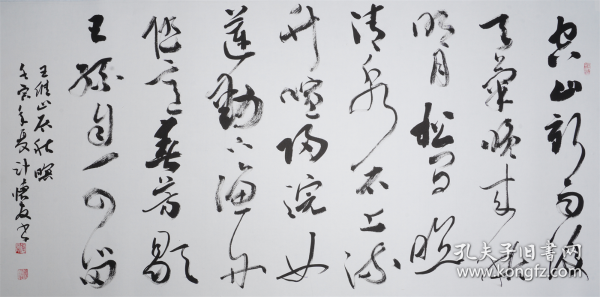 空山新雨後
天氣晚来秋
明月松間照
清泉石上流
竹喧歸浣女
蓮動下漁舟
隨意春芳歇
王孫自可留
王維山居秋暝
壬寅年夏计懷书
孔夫子旧书网
www.kongfz.com